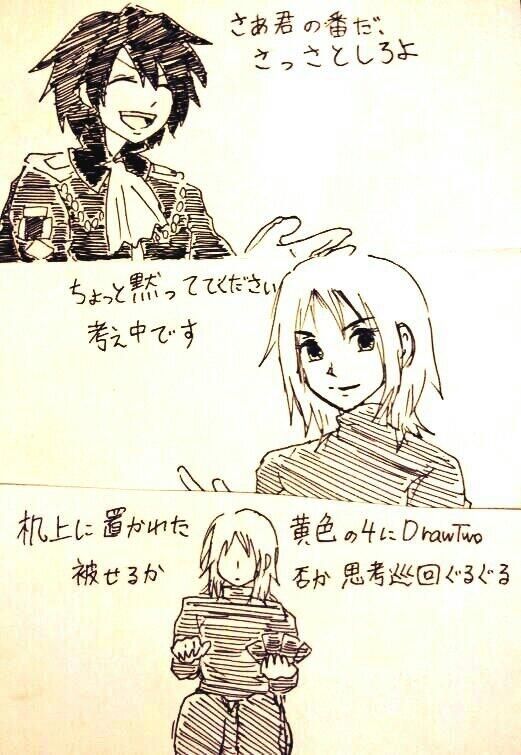 さあ君の番だ、
さっさとしろよ
ちょっと黙っててください
考え中です
机上に置かれた 黄色の4にDrawTwo
被せるか 否か 思考巡回ぐるぐる